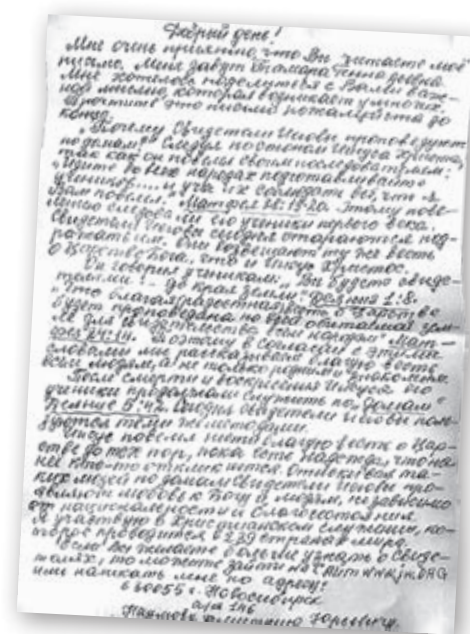 Добрый день!
Мне очень приятно, что Вы читаете моё
письмо. Меня зовут Тамара
Мне хотелось поделиться с Вами важ-
ной мыслью, которая возникает у многих.
Прочтите это письмо пожалуйста до
конца.
"Почему Свидетели Иеговы проповедуют
по домам?" Следуя по стопам Иисуса Христа,
так как он повелел своим последователям:
"Идите во все народы подготавливайте
учеников... и уча их соблюдать всё, что я
Вам повелел." Матфея 28:19-20. Этому пове-
лению следовали его ученики первого века.
Свидетели Иеговы сегодня стараются под-
ражать им. Они возвещают ту же весть
о Царстве Бога, что и Иисус Христос.
Он говорил ученикам: "Вы будете свиде-
телями... до края земли". Деяния 1:8.
"Эта благая радостная весть о Царстве
будет проповедана по всей обитаемой зем-
ле для свидетельства всем народам" Мат-
фея 24:14. Поэтому в согласии с этими
словами мы рассказываем благую весть
всем людям, а не только родным и знакомым.
После смерти и воскресения Иисуса его
ученики продолжали служить по "домам"
Деяние 5:42. Сегодня свидетели Иеговы поль-
зуются теми же методами.
Иисус повелел нести благую весть о Цар-
стве до тех пор, пока есть надежда, что на
неё кто-то откликнется. Отыскивая та-
ких людей по домам Свидетели Иеговы про-
являют любовь к Богу и людям, не зависимо
от национальности и благосостояния.
Я участвую в христианском служении, ко-
торое проводится в 239 странах мира.
Если Вы желаете больше узнать о Свиде-
телях, то можете зайти на сайт www.jw.ORG
или написать мне по адресу:
630055 г. Новосибирск
а/я 146
Юрьевичу.